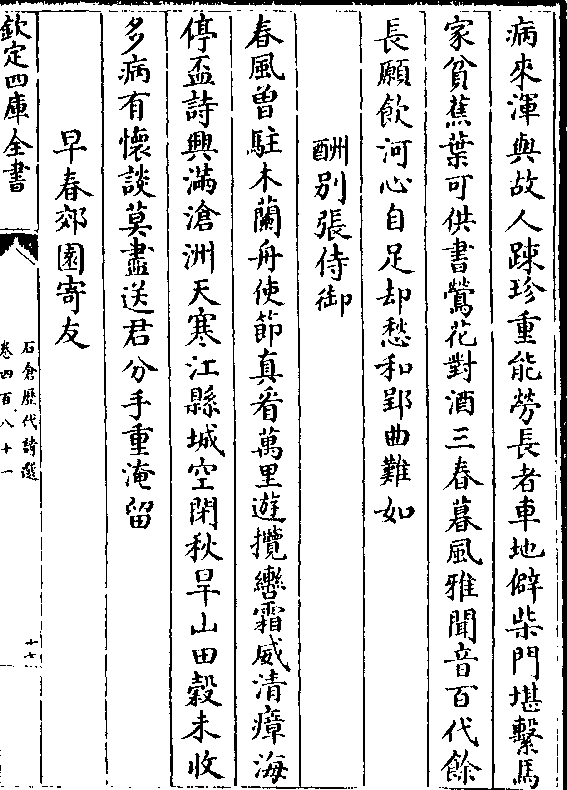 病來渾與故人踈珍重能勞長者車地僻柴門堪繫馬
家貧蕉葉可供書鶯花對酒三春暮風雅聞音百代餘
長願飲河心自足却愁和郢曲難如
酬别張侍御
春風曽駐木蘭舟使節真看萬里遊攬轡霜威清瘴海
停盃詩興滿滄洲天寒江縣城空閉秋旱山田榖未收
多病有懷談莫盡送君分手重淹留
早春郊園寄友
欽定四庫全書
石倉歴代詩選
卷四百八十一